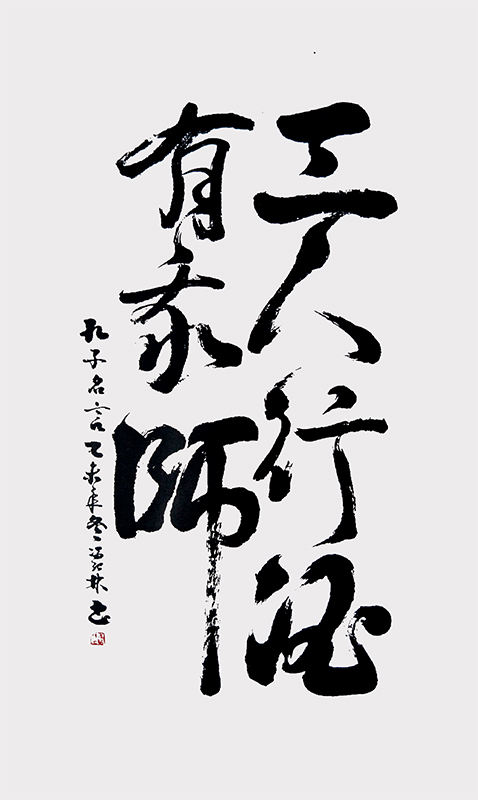 三人行
有我師
孔子名言乙未年冬林书